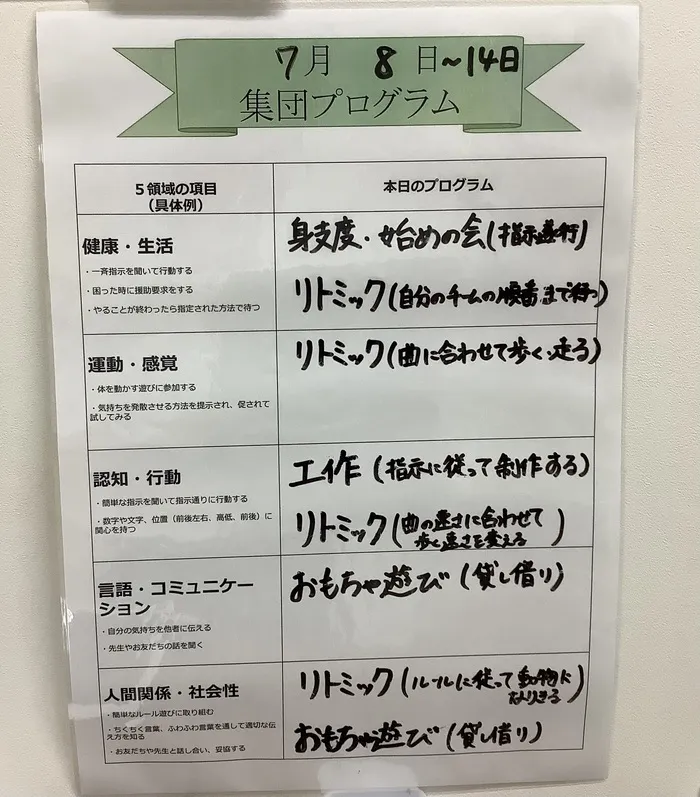 7月 8日~14日
集団プログラム
5領域の項目
(具体例)
本日のプログラム
健康・生活
・一斉指示を聞いて行動する
・困った時に援助要求をする
・やることが終わったら指定された方法で待つ
身支度・始めの会(指示遂行)
リトミック(自分のチームの順番まで待つ)
運動・感覚
・体を動かす遊びに参加する
・気持ちを発散させる方法を提示され、促されて
試してみる
リトミック(曲に合わせて歩く、走る)
認知・行動
・簡単な指示を聞いて指示通りに行動する
・数字や文字、位置(前後左右、高低、前後)に
関心を持つ
工作(指示に従って制作する)
リトミック(曲の速さに合わせて
歩く速さを変える)
言語・コミュニケー
ション
・自分の気持ちを他者に伝える
・先生やお友だちの話を聞く
おもちゃ遊び(貸し借り)
人間関係・社会性
・簡単なルール遊びに取り組む
・ちくちく言葉、ふわふわ言葉を通して適切な伝
え方を知る
・お友だちや先生と話し合い、妥協する
リトミック(ルールに従って動物に
なりきる)
おもちゃ遊び(貸し借り)